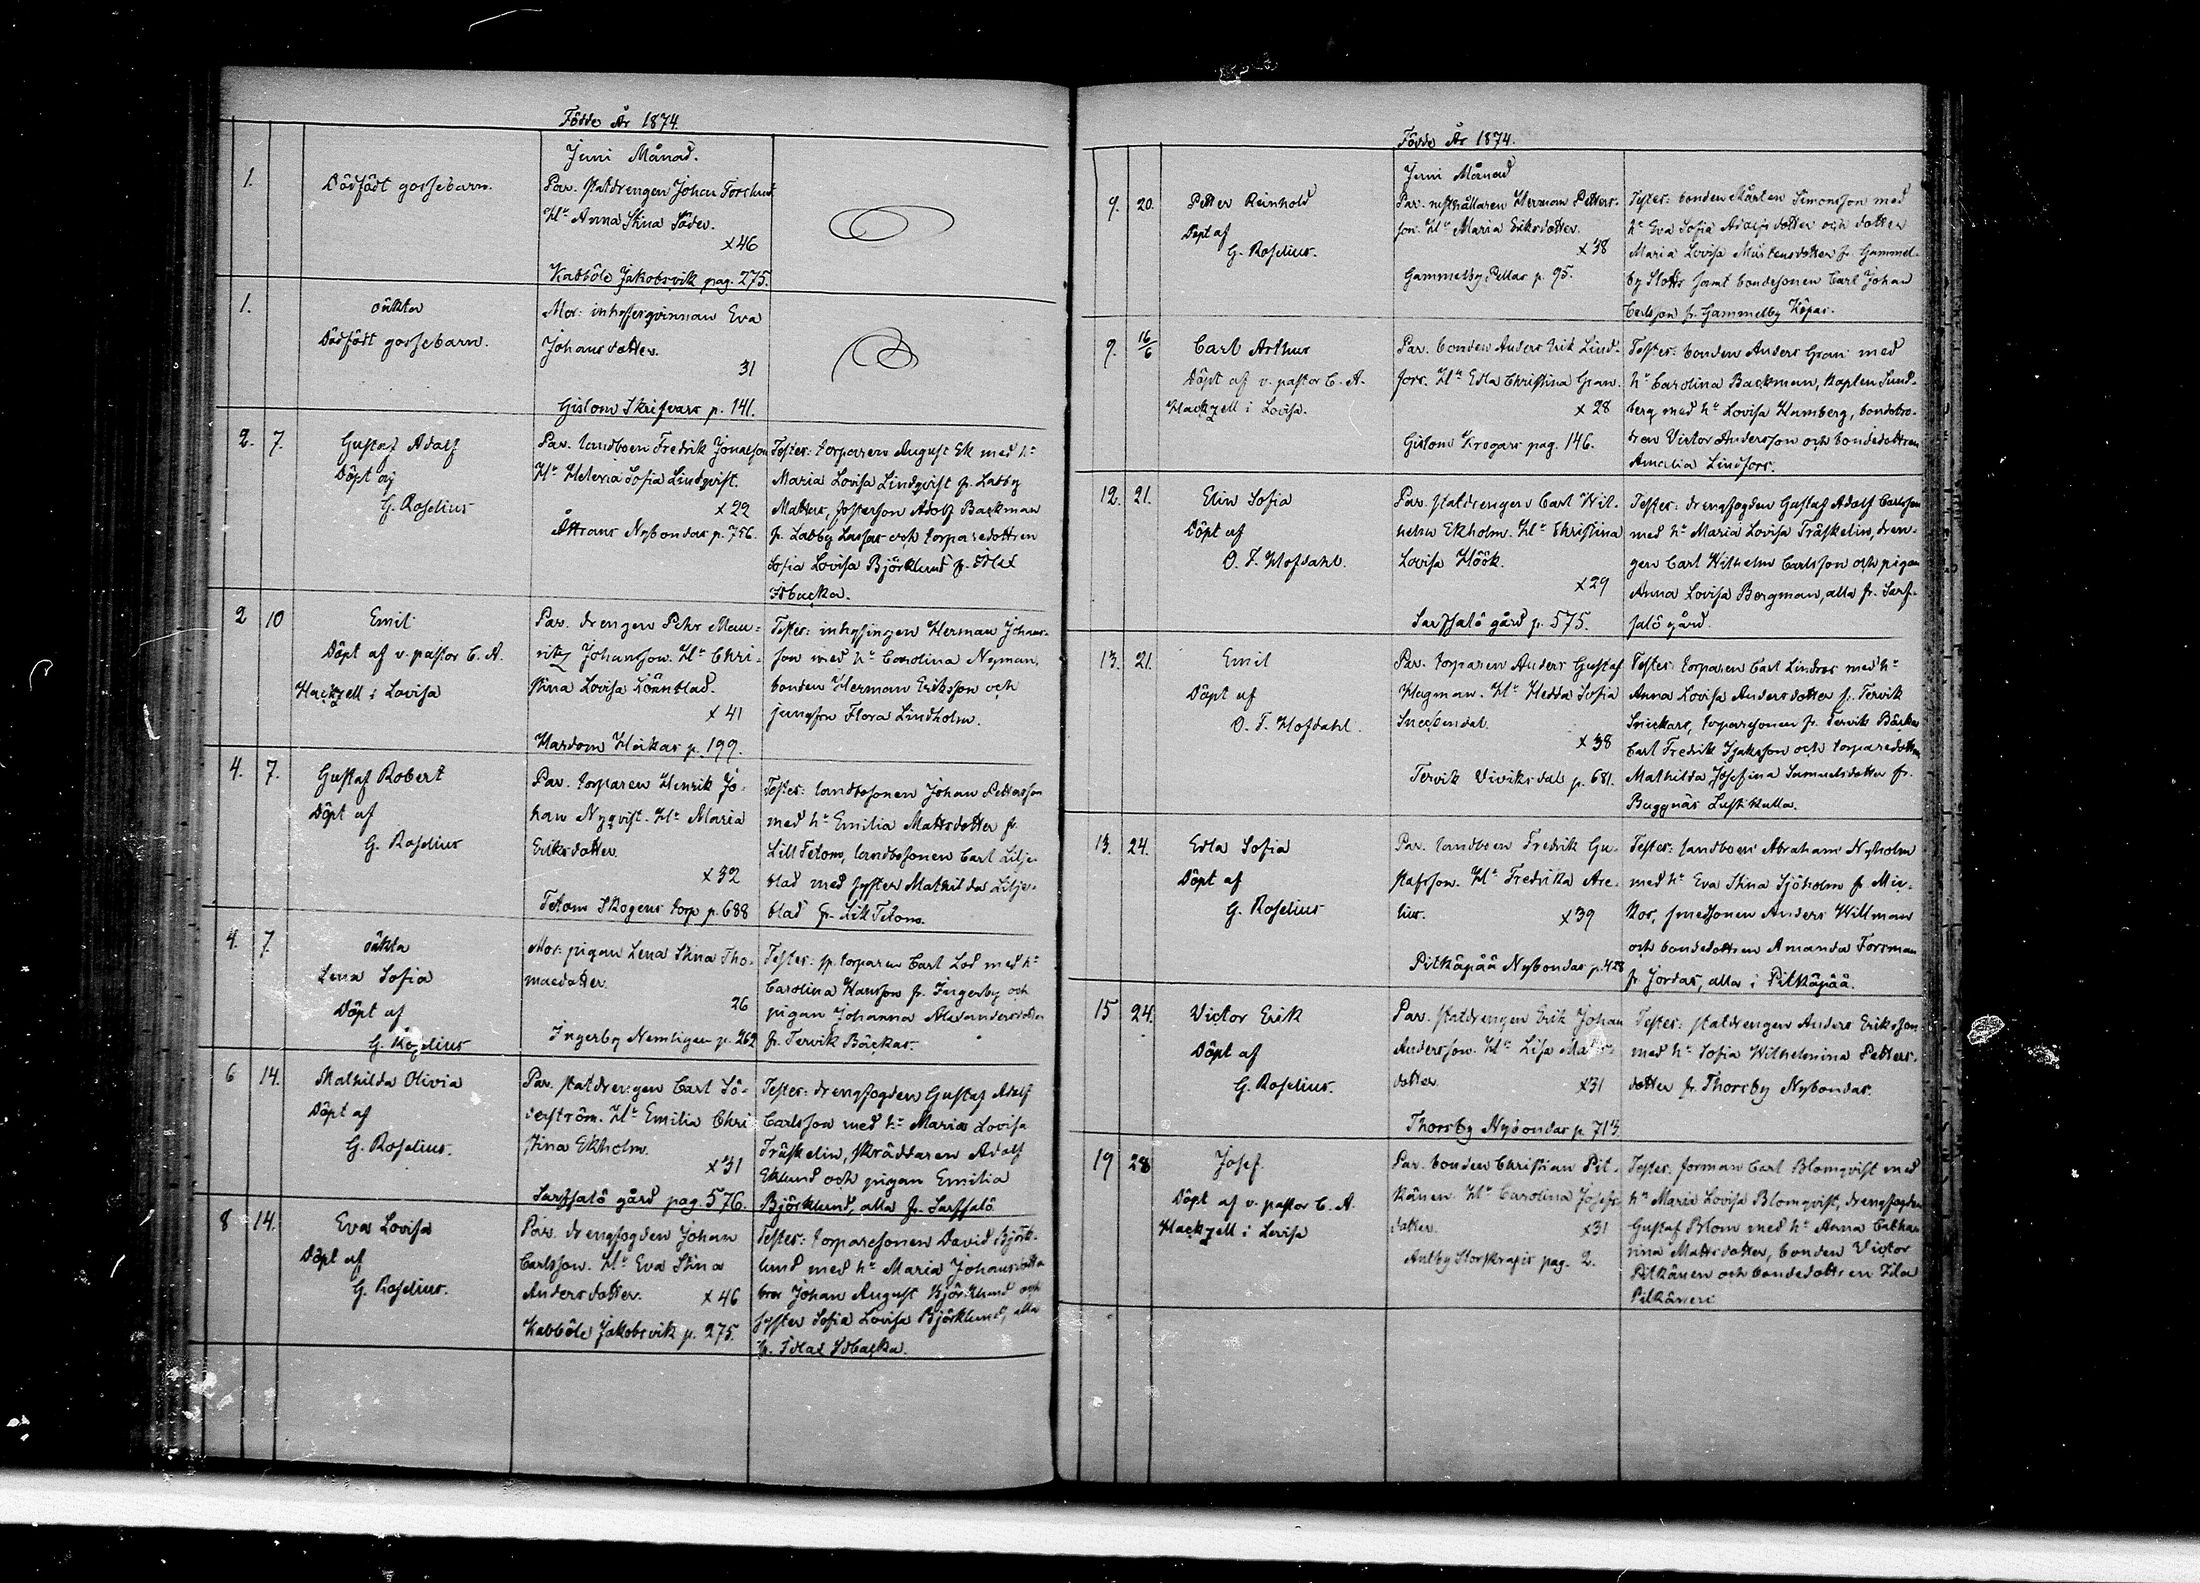 Födde År 1874.
Juni Månad.
1.
Dödfödt gossebarn.
Par. statdrengen Johan Forslund
H:u Anna Stina Söder.
x46
Kabböle Jakobsvik pag. 275.
1.
oäkta
Dödfödt gossebarn.
Mor: inhysesqvinnan Eva
Johansdotter.
31
Gislom Skrifvars p. 141.
2. 7.
Gustaf Adolf
Döpt af
G. Roselius
Par. landboen Fredrik Jonasson
H:u Helena Sofia Lindqvist.
x22
Åttrans Nybondas p. 756.
Tester: torparen August Ek med h:u
Maria Lovisa Lindqvist fr. Labby
Mattus, fosterson Adolf Backman
fr. Labby Lassas och torparedottren
Sofia Lovisa Björklund fr.
Sbacka.
2 10
Emil
Döpt af v. pastor C. A.
Hackzell i Lovisa
Par. drengen Pehr Mau-
ritz Johansson. H:u Chri-
stina Lovisa Lönnblad.
x41
Hardom Heikas p. 199.
Tester: inhysingen Herman Johans-
son med h:u Carolina Nyman,
bonden Herman Eriksson och
jungfrn Flora Lindholm.
4. 7.
Gustaf Robert
Döpt af
G. Roselius
Par. torparen Henrik Jo-
han Nyqvist. H:u Maria
Eriksdotter.
x32
Tetom Skogens torp p. 688
Tester: landbosonen Johan Pettersson
med h:u Emilia Mattsdotter fr.
Lill Tetom, landbosonen Carl Lilje-
blad med syster Mathilda Lilje-
blad fr. Lill Tetom.
4. 7.
oäkta
Lena Sofia
Döpt af
G. Roselius
Mor: pigan Lena Stina Tho-
maedotter.
26
Ingerby Nemligen p. 262
Tester: sp. torparen Carl Lod med h:u
Carolina Hansson fr. Ingerby och
pigan Johanna Alexandersdotter
fr. Tervik Bäckas.
6 14.
Mathilda Olivia
Döpt af
G. Roselius.
Par. statdrengen Carl Sö-
derström. H:u Emilia Chri
stina Ekholm.
x31
Sarfsalö gård pag. 576.
Tester: drengfogden Gustaf Adolf
Carlsson med h:u Maria Lovisa
Träskelin, skräddaren Adolf
Eklund och pigan Emilia
Björklund, alla fr. Sarfsalö
8 14.
Eva Lovisa
Döpt af
G. Roselius.
Par. drengfogden Johan
Carlsson. H:u Eva Stina
Andersdotter. x46
Kabböle Jakobsvik p. 275.
Tester: torparesonen David Björk-
lund med h:u Maria Johansdotter
bror Johan August Björklund och
syster Sofia Lovisa Björklund, alla
fr. Sbacka.
Födde År 1874.
Juni Månad
9. 20.
Petter Reinhold
Döpt af
G. Roselius.
Par. rusthållaren Herman Petters-
son. H:u Maria Eriksdotter.
x38
Gammelby Pellas p. 95.
Tester: bonden Mårten Simonsson med
h:u Eva Sofia Adolfsdotter och dotter
Maria Lovisa Mårtensdotter fr. Gammel-
by Slotts samt bondesonen Carl Johan
Carlsson fr. Gammelby Köpas.
9. 16/6
Carl Arthur
Döpt af v. pastor C. A.
Hackzell i Lovisa.
Par. bonden Anders Erik Lind-
fors. H:u Edla Christina Gran.
x28
Gislom Krogars pag. 146.
Tester: bonden Anders Gran med
h:u Carolina Backman, kaplen Sund-
berg med h:u Lovisa Hamberg, bondebro-
dren Victor Andersson och bondedottren
Amalia Lindfors.
12. 21.
Elin Sofia
Döpt af
O. F. Hofdahl.
Par. statdrengen Carl Wil-
helm Ekholm. H:u Christina
Lovisa Höök.
x29
Sarfsalö gård p. 575.
Tester: drengfogden Gustaf Adolf Carlsson
med h:u Maria Lovisa Träskelin, dren-
gen Carl Wilhelm Carlsson och pigan
Anna Lovisa Bergman, alla fr. Sarf-
salö gård.
13. 21.
Emil
Döpt af
O. F. Hofdahl.
Par. torparen Anders Gustaf
Hagman. H:u Hedda Sofia
x38
Tervik Viviksdal p. 681.
Tester: torparen Carl Lindros med h:u
Anna Lovisa Andersdotter fr. Tervik
Snickars, torparesonen fr. Tervik Bäckas
Carl Fredrik Isaksson och torparedottren
Mathilda Josefina Samuelsdotter fr.
Buggnäs
13. 24.
Edla Sofia
Döpt af
G. Roselius
Par. landboen Fredrik Gu-
stafsson. H:u Fredrika Are-
lius. x39
Pitkäpää Nybondas p. 428
Tester: landboen Abraham Nyholm
med h:u Eva Stina Sjöholm fr. Mic-
kos, smedsonen Anders Willman
och bondedottren Amanda Forsman
fr. Jordas, alla i Pitkäpää.
15 24.
Victor Erik
Döpt af
G. Roselius.
Par. statdrengen Erik Johan
Andersson. H:u Lisa Matts-
dotter. x31
Thorsby Nybondas p. 713
Tester: statdrengen Anders Eriksson
med h:u Sofia Wilhelmina Petters-
dotter fr. Thorsby Nybondas.
19 28
Josef
Döpt af v. pastor C. A.
Hackzell i Lovisa
Par. bonden Christian Pit-
känen. H:u Carolina Josefs-
dotter. x31
Antby Storskrafis pag. 2.
Tester: forman Carl Blomqvist med
h:u Maria Lovisa Blomqvist, drengfogden
Gustaf Blom med h:u Anna Catha-
rina Mattsdotter, bonden Victor
Pitkänen och bondedottren
Pitkänen